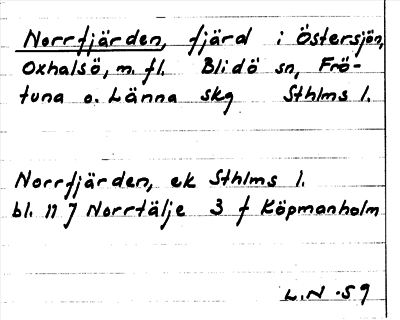 Norrfjärden, fjärd i Östersjön,
Oxhalsö, m. fl. Blidö sn, Frö-
tuna o. Länna skg Sthlms l.
Norrfjärden, ek Sthlms l.
bl. 11 J Norrtälje 3 f Köpmanholm
L.N -59